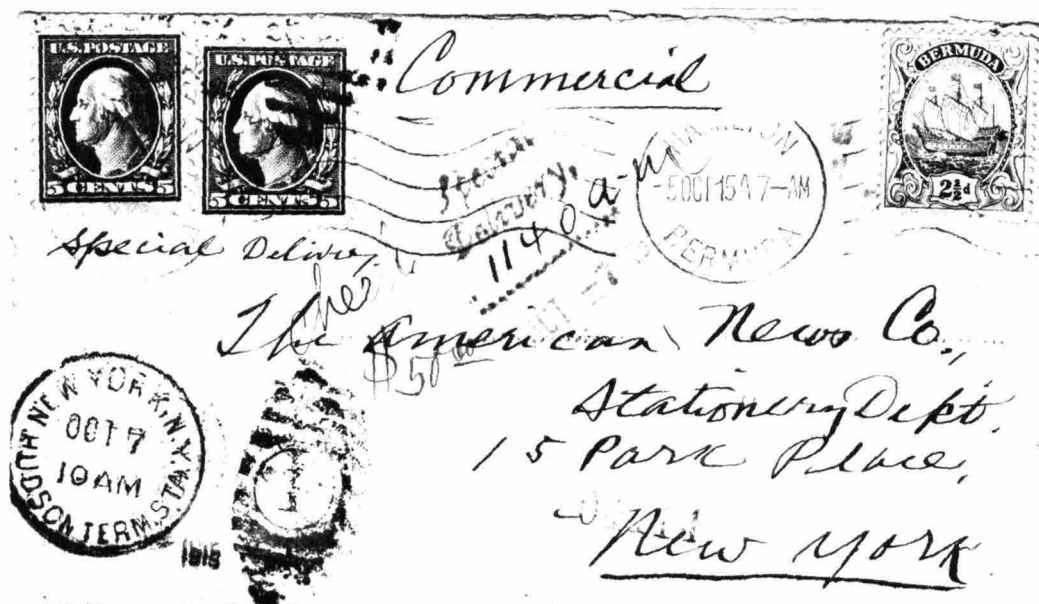 U.S. POSTAGE
5 CENTS 5
U.S. POSTAGE
5 CENTS 5
Commercial
BERMUDA
2½d
Special
Delivery,
1140 a-m
HAMILTON
5 OCT 15 4 7-AM
BERMUDA
Special Delivery
The American News Co.,
$50
Stationery Dept.
15 Park Place,
New York
NEW YORK, N.Y.
OCT 7
10 AM
HUDSON TERM. STA.
1915